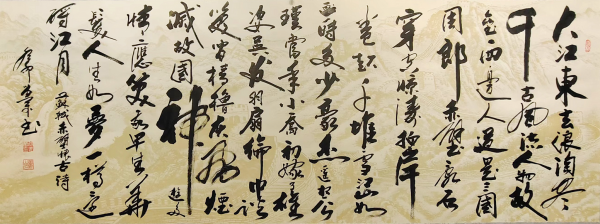 大江東去浪淘尽
千古風流人物故
垒西邊人道是三国
周郎赤壁乱石
穿空惊涛拍岸
卷起千堆雪江山如
画一时多少豪杰遥想公
瑾当年小喬初嫁了雄
姿英发羽扇綸巾談
笑间樯橹灰飛煙
滅故国神遊多
情應笑我早生華
髮人生如夢一樽还
酹江月
苏轼赤壁怀古诗